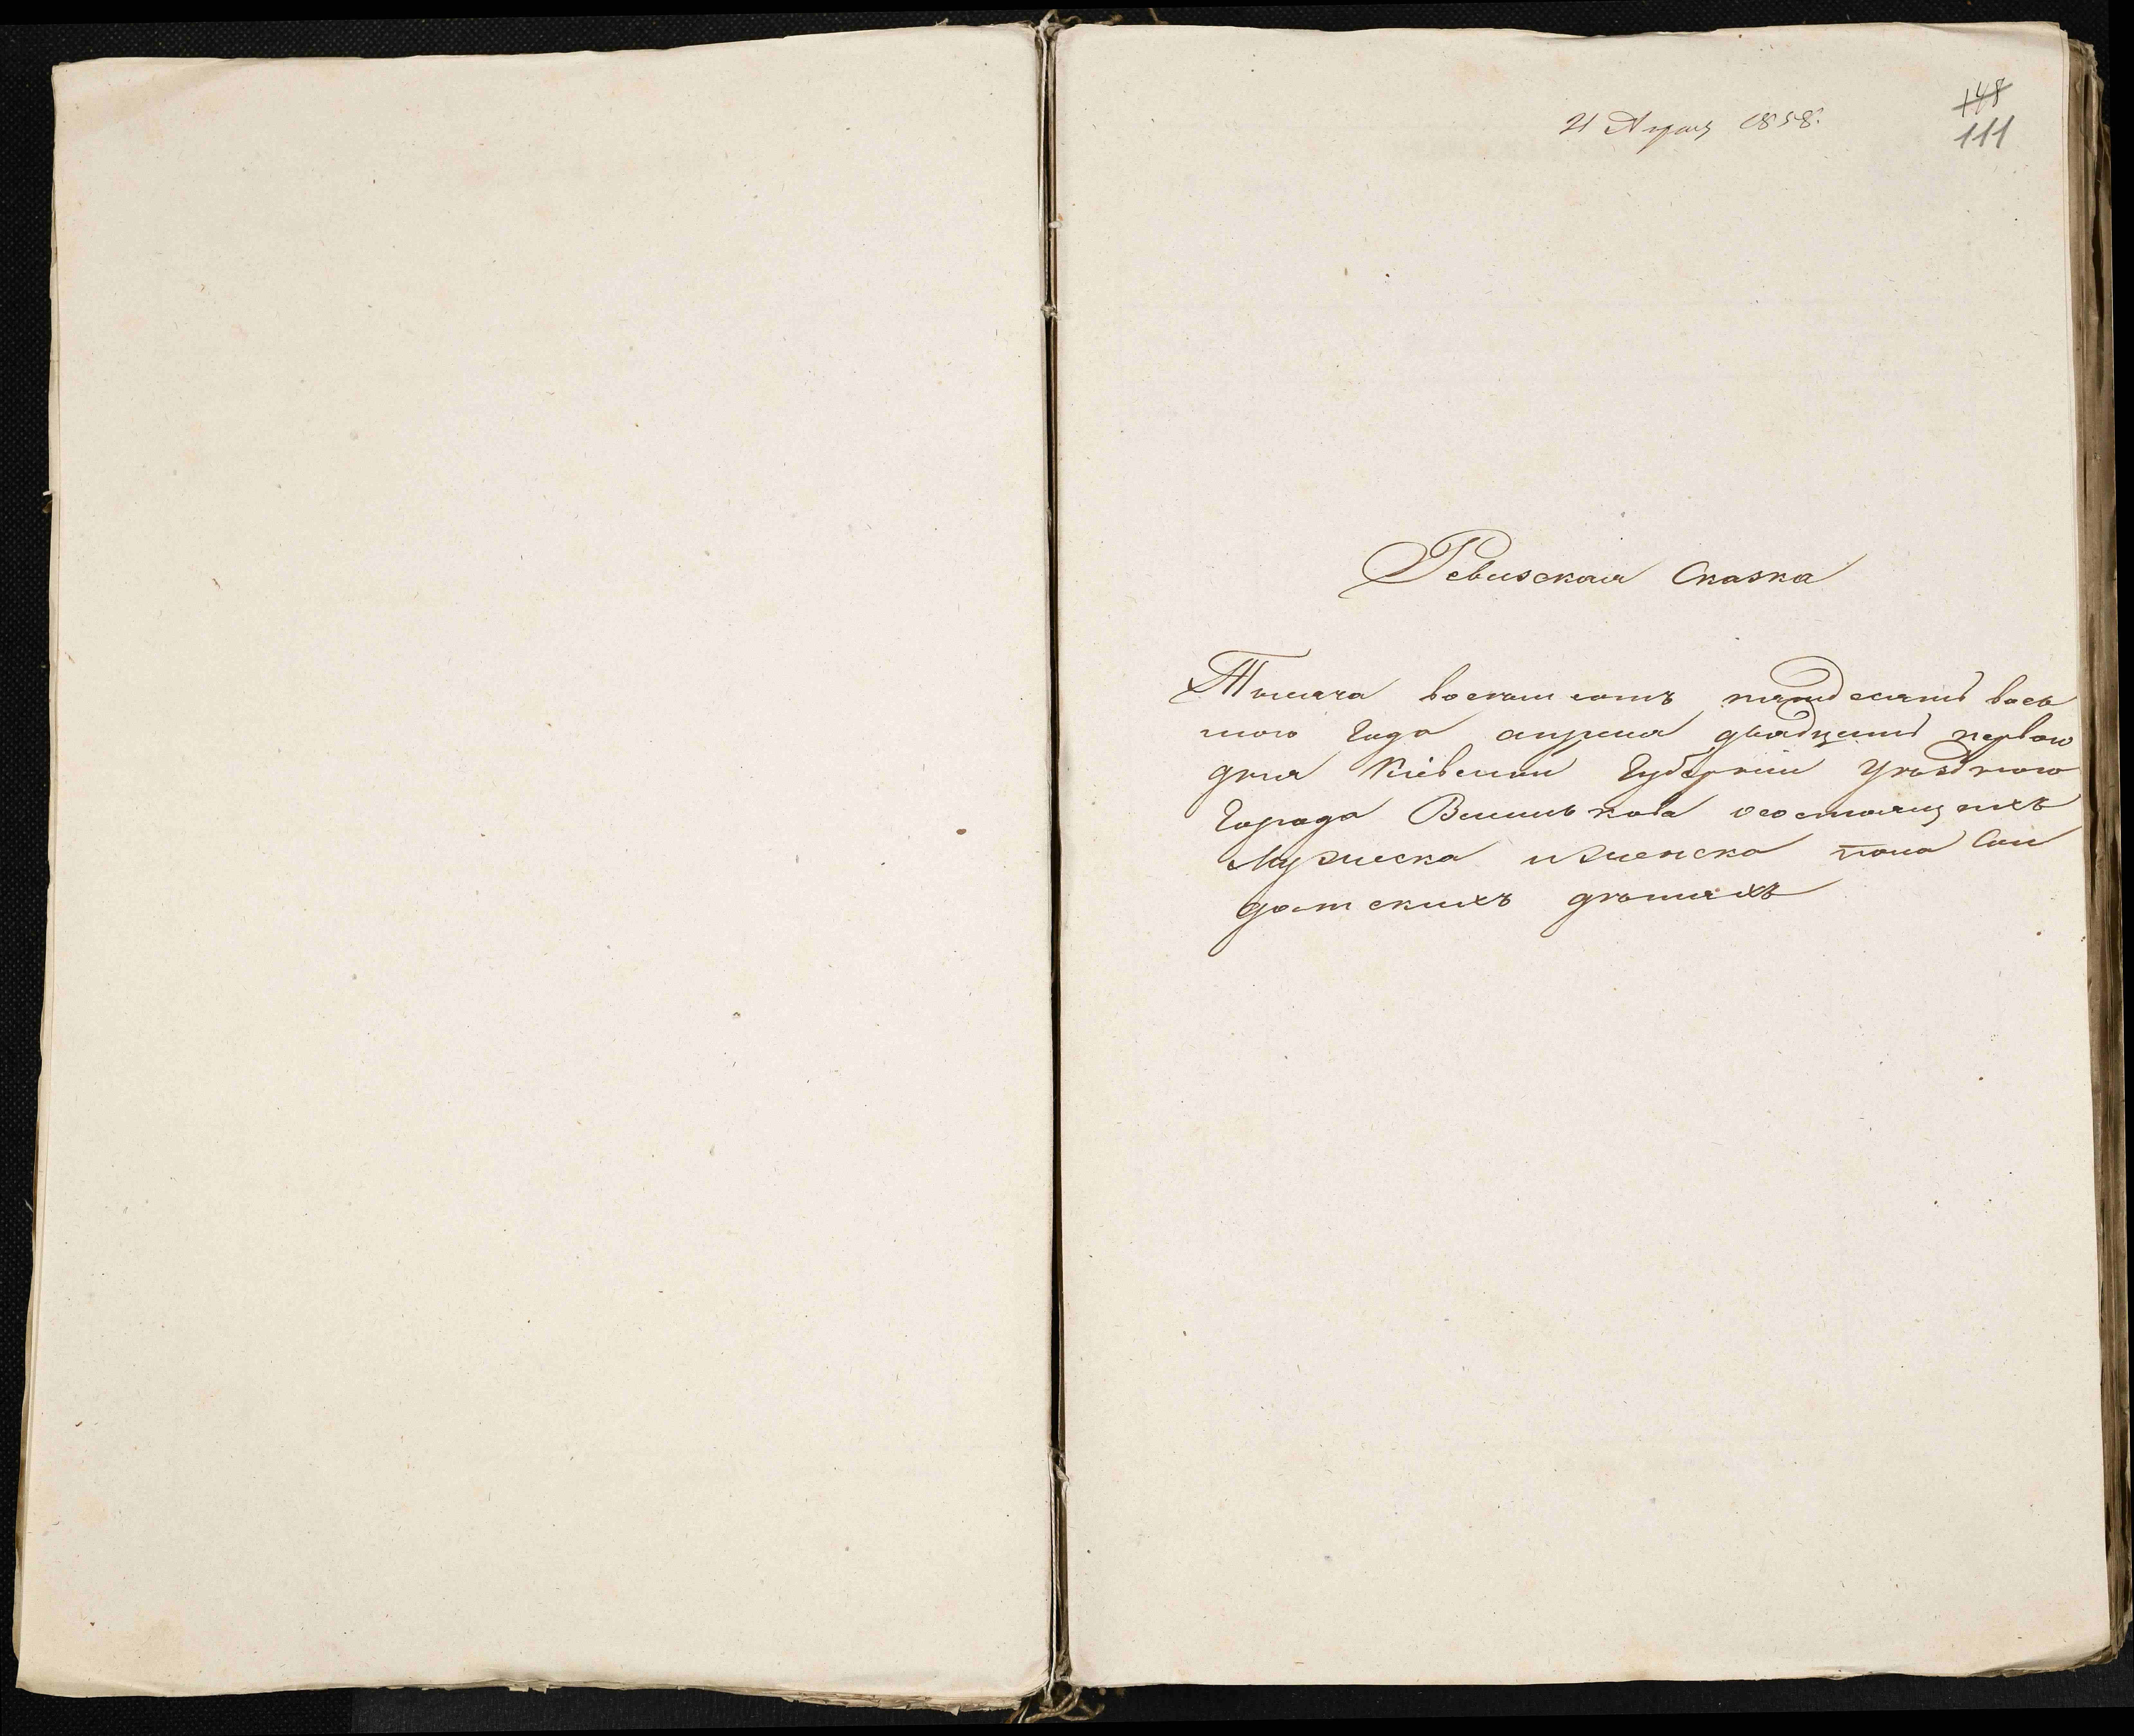 21 Апреля 1858.
148
111
Ревизская Сказка
Тысяча восемьсотъ пятьдесятъ вось
мого года апреля двадцать первого
дня Кіевской Губерніи Уѣзднаго
Города Василькова состоящихъ
Мужеска и женска пола Сол
датскихъ дѣтяхъ